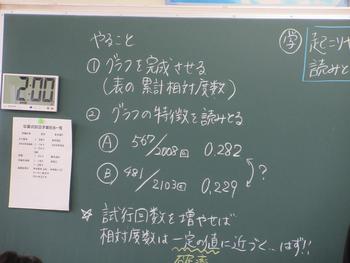 やること
① グラフを完成させる
(表の累計相対度数)
② グラフの特徴を読みとる
Ⓐ 567/2008回 0.282
Ⓑ 481/2103回 0.229
?
☆ 試行回数を増やせば
相対度数は一定の値に近づく…はず!!
確率
学 起こりや
読みと
2:00